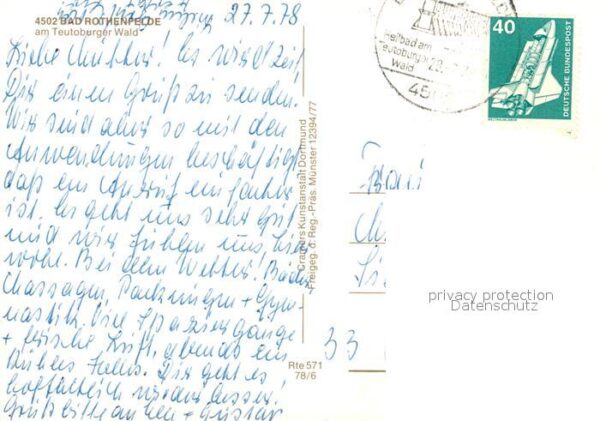 4502 BAD ROTHENFELDE
am Teutoburger Wald
27.7.78
Liebe Mutter! Es wird Zeit
Dir einen Gruß zu senden.
Wir sind aber so mit den
Anwendungen beschäftigt,
daß ein Anruf einfacher
ist. Es geht uns sehr gut
und wir fühlen uns hier
wohl. Bei dem Wetter! Bäder
Massagen, Packungen + Gym-
nastik. Viele Spaziergänge
+ frische Luft, abends ein
kühles Helles. Dir geht es
hoffentlich wieder besser!
Grüß bitte + Gustav
Cramers Kunstanstalt Dortmund
Freigeg. d. Reg.-Präs. Münster 12394/77
Rte 571
78/6
Heilbad am
Teutoburger
Wald
40
DEUTSCHE BUNDESPOST
Frau
33
privacy protection
Datenschutz